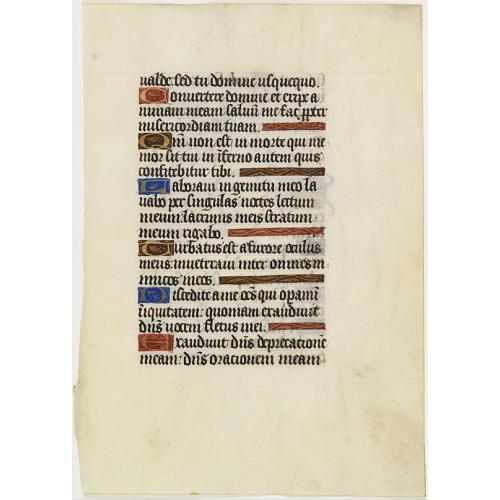 ualde: sed tu domine usquequo.
Conuertere domine et eripe a
nimam meam: saluū me fac ppter
misericordiam tuam.
Qm̄ non est in morte qui me
mor sit tui in inferno autem quis
confitebitur tibi.
Laboraui in gemitu meo la
uabo per singulas noctes lectum
meum: lacrimis meis stratum
meum rigabo.
Turbatus est a furore oculus
meus: inueteraui inter omnes in
imicos meos.
Discedite a me oēs qui opamī
iniquitatem: quoniam exaudiuit
dn̄s uocem fletus mei.
Exaudiuit dn̄s deprecationē
meam: dn̄s orationem meam